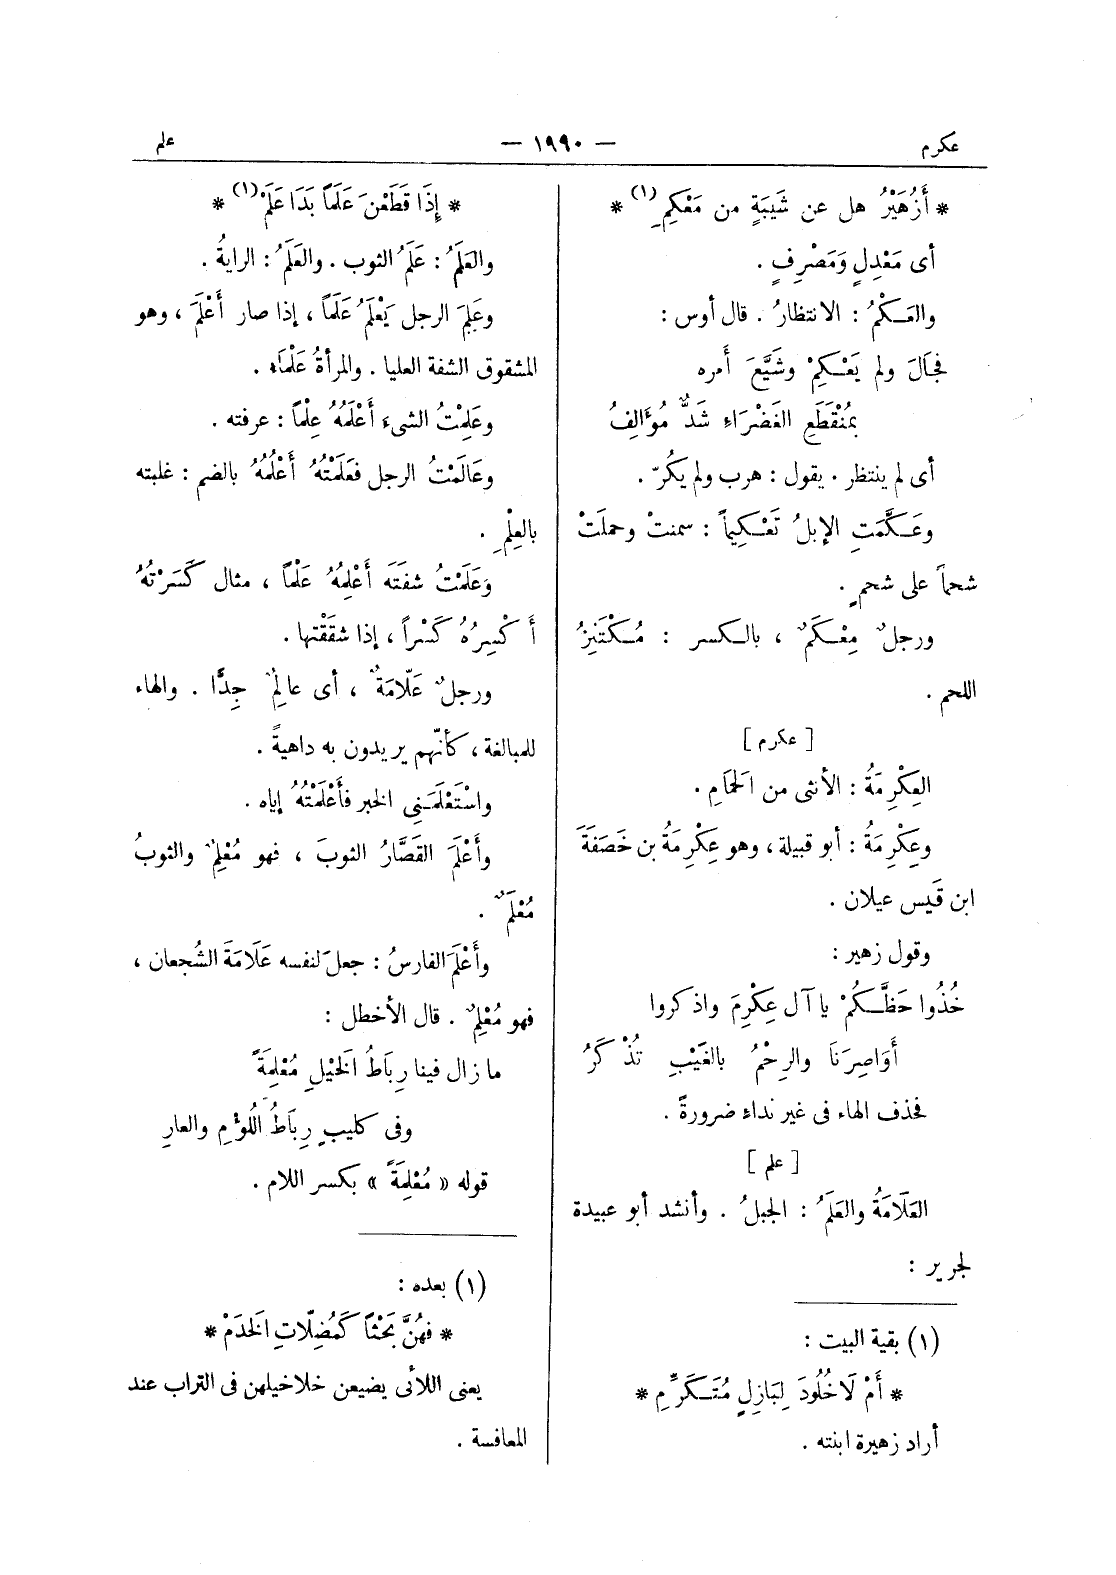 عكرم — ١٩٩٠ — علم
* أَزُهَيْرُ هل عن شَيبَةٍ من مَعْكِمِ (١) *
أى مَعْدِلٍ وَمَصْرِفٍ .
والعَكْمُ : الانتظارُ . قال أوس :
فجَالَ ولم يَعْكِمْ وشَيَّعَ أَمره
بمُنْقَطَعِ الغَضْرَاءِ شَدٌّ مُؤَالِفُ
أى لم ينتظر . يقول : هرب ولم يكُرّ .
وعَكَّمَتِ الإبلُ تَعْكِيماً : سمنتْ وحملَتْ
شحماً على شحمٍ .
ورجلٌ مِعْكَمٌ ، بالكسر : مُكْتَنِزُ
اللحم .
[ عكرم ]
العِكْرِمَةُ : الأنثى من الَحمَامِ .
وعِكْرِمَةُ : أبو قبيلة ، وهو عِكْرِمَةُ بن خَصَفَةَ
ابن قَيس عيلان .
وقول زهير :
خُذُوا حَظَّكُمْ يا آل عِكْرِمَ واذكروا
أَوَاصِرَنَا والرِحْمُ بالغَيْبِ تُذْكَرُ
فحذف الهاء فى غير نداءِ ضرورةً .
[ علم ]
العَلَامَةُ والعَلَمُ : الجبلُ . وأنشد أبو عبيدة
لجرير :
(١) بقية البيت :
* أَمْ لَا خُلُودَ لِبَازِلٍ مُتَكَرِّمِ *
أراد زهيرة ابنته .
* إِذَا قَطَعْنَ عَلَماً بَدَا عَلَمْ (١) *
والعَلَمُ : عَلَمُ الثوب . والعَلَمُ : الرايةُ .
وعَلِمَ الرجل يَعْلَمُ عَلَماً ، إذا صار أَعْلَمَ ، وهو
المشقوق الشفة العليا . والمرأةُ عَلْمَاء .
وعَلِمْتُ الشىءَ أَعْلَمُهُ عِلْماً : عرفته .
وعَالَمْتُ الرجل فعَلَمْتُهُ أَعْلُمُهُ بالضم : غلبته
بالعِلْمِ .
وَعَلَمْتُ شفَتَه أَعْلِمُهُ عَلْماً ، مثال كَسَرْتُهُ
أَكْسِرُهُ كَسْراً ، إذا شقَقْتها .
ورجلٌ عَلّامَةٌ ، أى عالِمٌ جِدًّا . والهاء
للمبالغة ، كأنّهم يريدون به داهيةً .
واسْتَعْلَمَنِى الخبر فأَعْلَمْتُهُ إياه .
وأَعْلَمَ القَصَّارُ الثوبَ ، فهو مُعْلِمٌ والثوبُ
مُعْلَمٌ .
وأَعْلَمَ الفارسُ : جعلَ لنفسه عَلَامَةَ الشُجعان ،
فهو مُعْلِمٌ . قال الأخطل :
ما زال فينا رِباَطُ الَخيْلِ مُعْلِمَةً
وفى كليبٍ رِبَاطُ اللُؤْمِ والعارِ
قوله « مُعْلِمَةً » بكسر اللام .
(١) بعده :
* فهُنَّ بَحْثًا كَمُضِلَّاتِ الَخدَمْ *
يعنى اللائى يضيعن خلاخيلهن فى التراب عند
المعافسة .